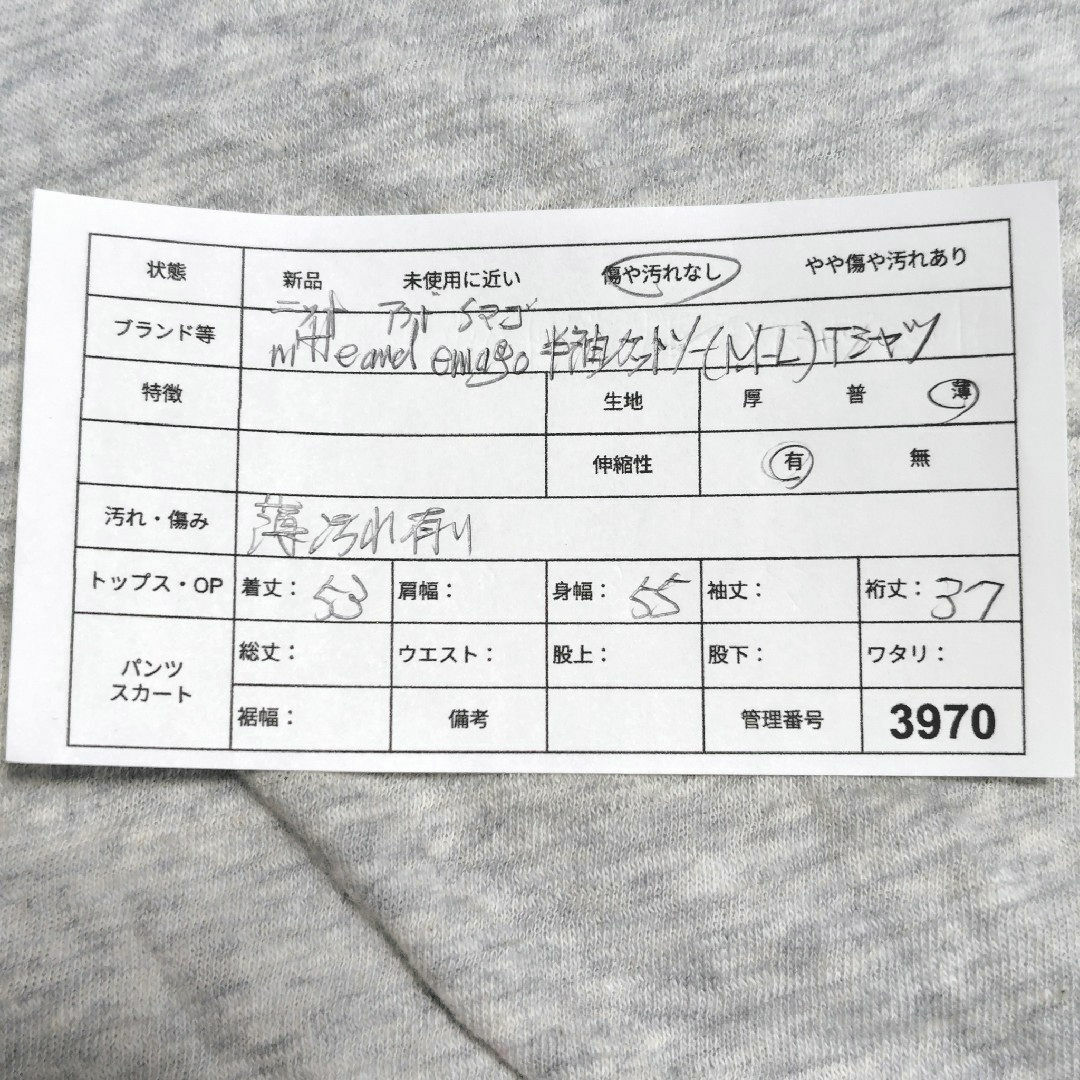 状態 新品 未使用に近い 傷や汚れなし やや傷や汚れあり
ブランド等 半袖カットソー(M-L)Tシャツ
特徴 生地 厚 普 薄
伸縮性 有 無
汚れ・傷み 薄汚れ有り
トップス・OP 着丈: 53 肩幅: 身幅: 55 袖丈: 裄丈: 37
パンツ スカート 総丈: ウエスト: 股上: 股下: ワタリ:
裾幅: 備考 管理番号 3970